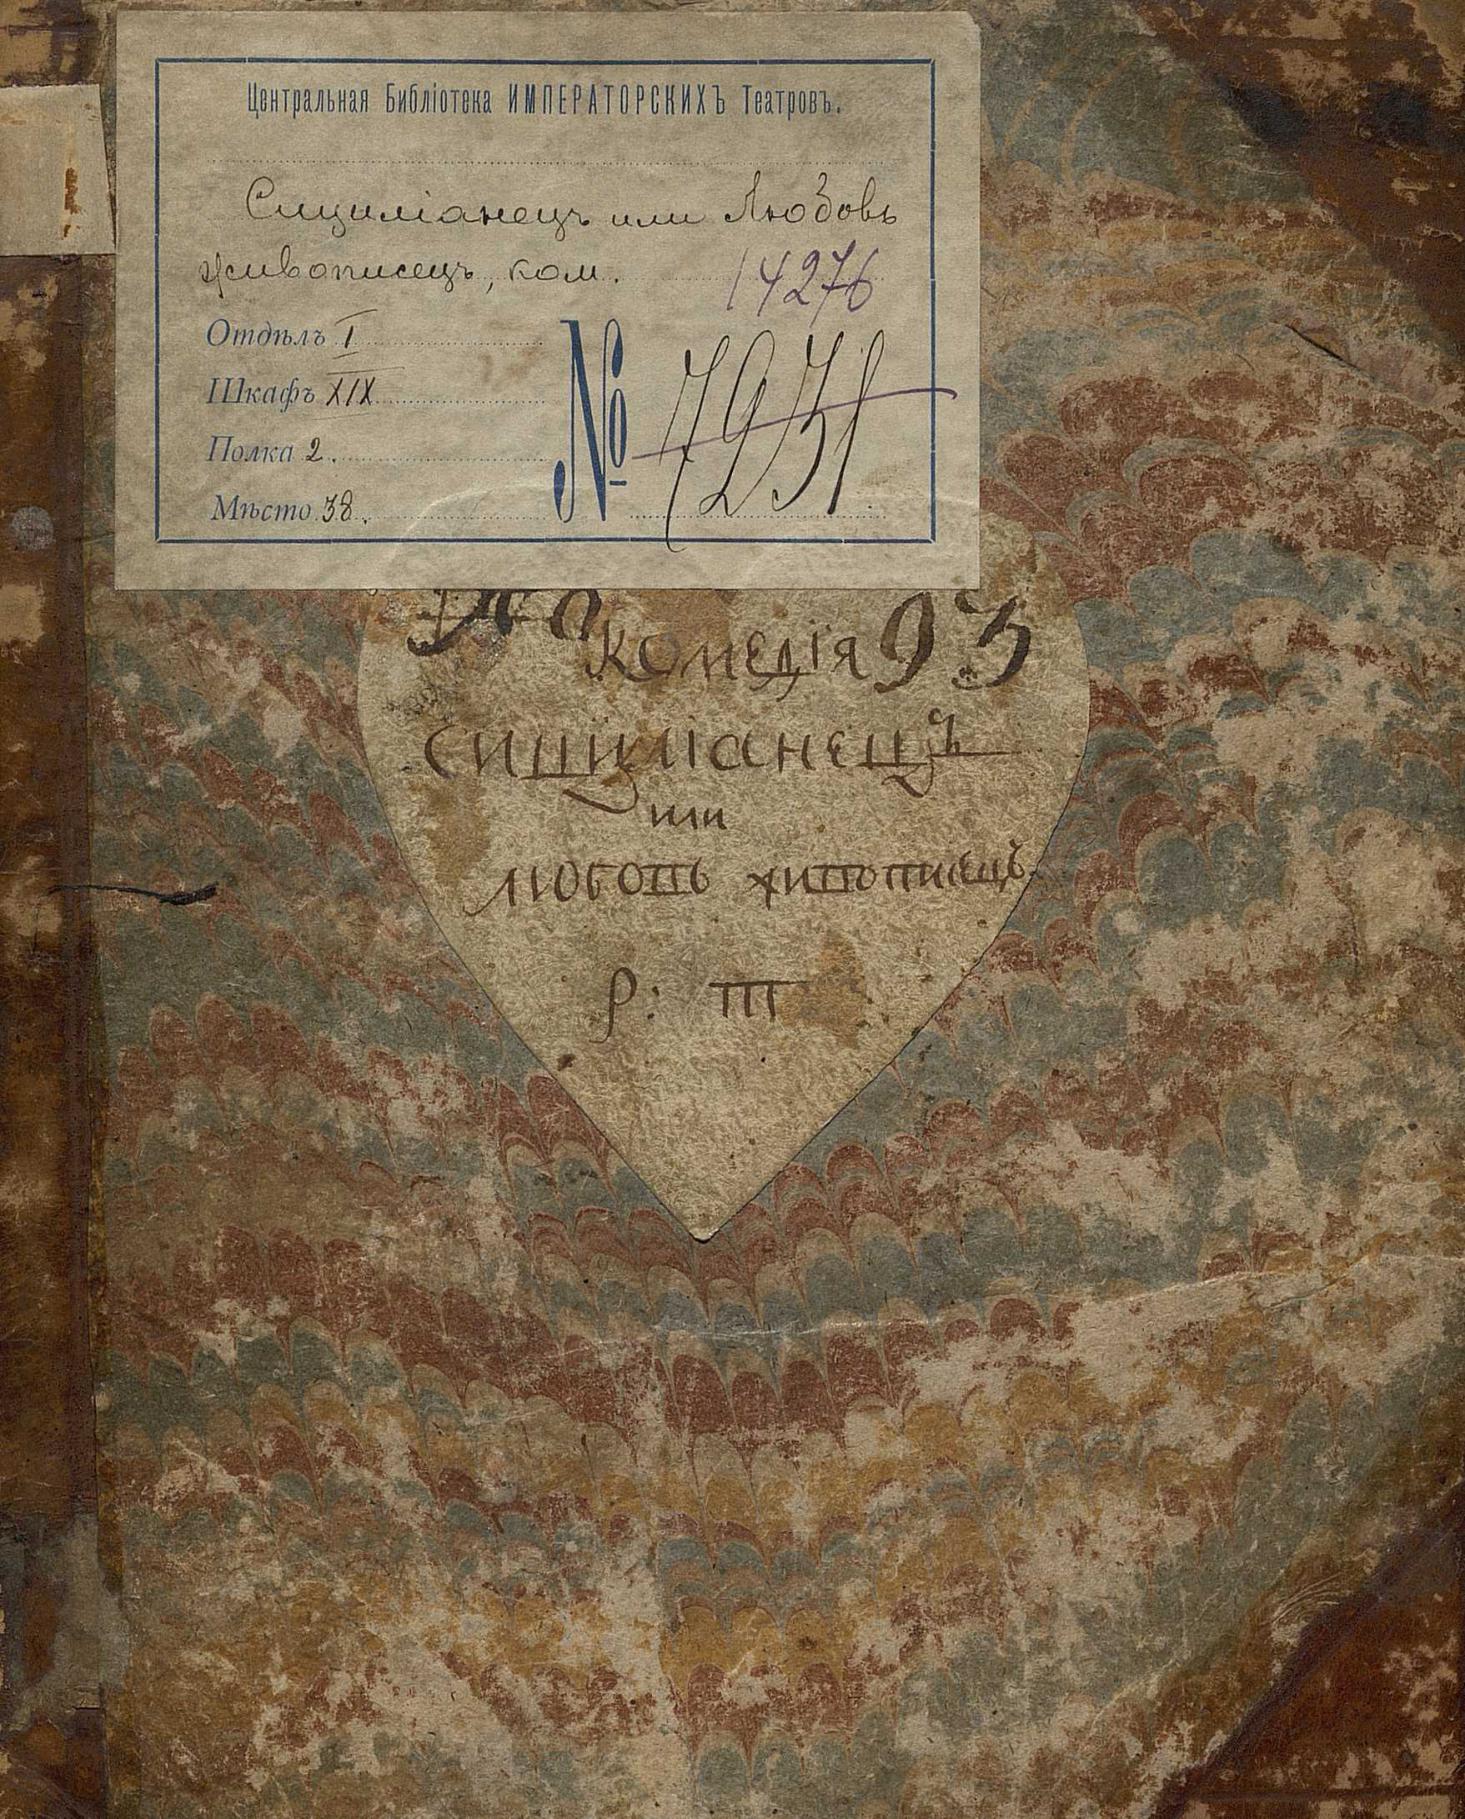 Центральная Библіотека ИМПЕРАТОРСКИХЪ Театровъ.
Сициліанецъ или Любовь
живописецъ, ком.
14276
Отдѣлъ I
Шкафъ XIX
Полка 2.
Мѣсто 38.
№ 7931
комедія 93
сициліанецъ
или
любовь живописецъ
р: ш